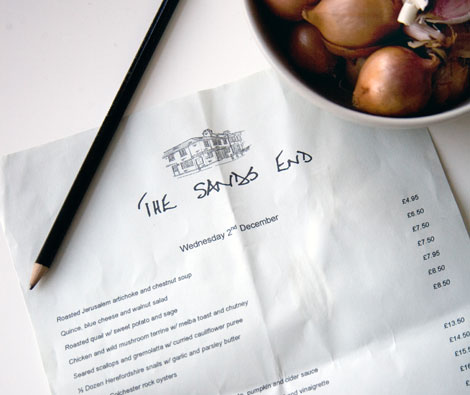 THE SANDS END
Wednesday 2nd December
Roasted Jerusalem artichoke and chestnut soup £4.95
Quince, blue cheese and walnut salad £6.50
Roasted quail w/ sweet potato and sage £7.50
Chicken and wild mushroom terrine w/ melba toast and chutney £7.50
Seared scallops and gremolatta w/ curried cauliflower puree £7.95
½ Dozen Herefordshire snails w/ garlic and parsley butter £8.50
rock oysters £8.50
pumpkin and cider sauce £13.50
and vinaigrette £14.50